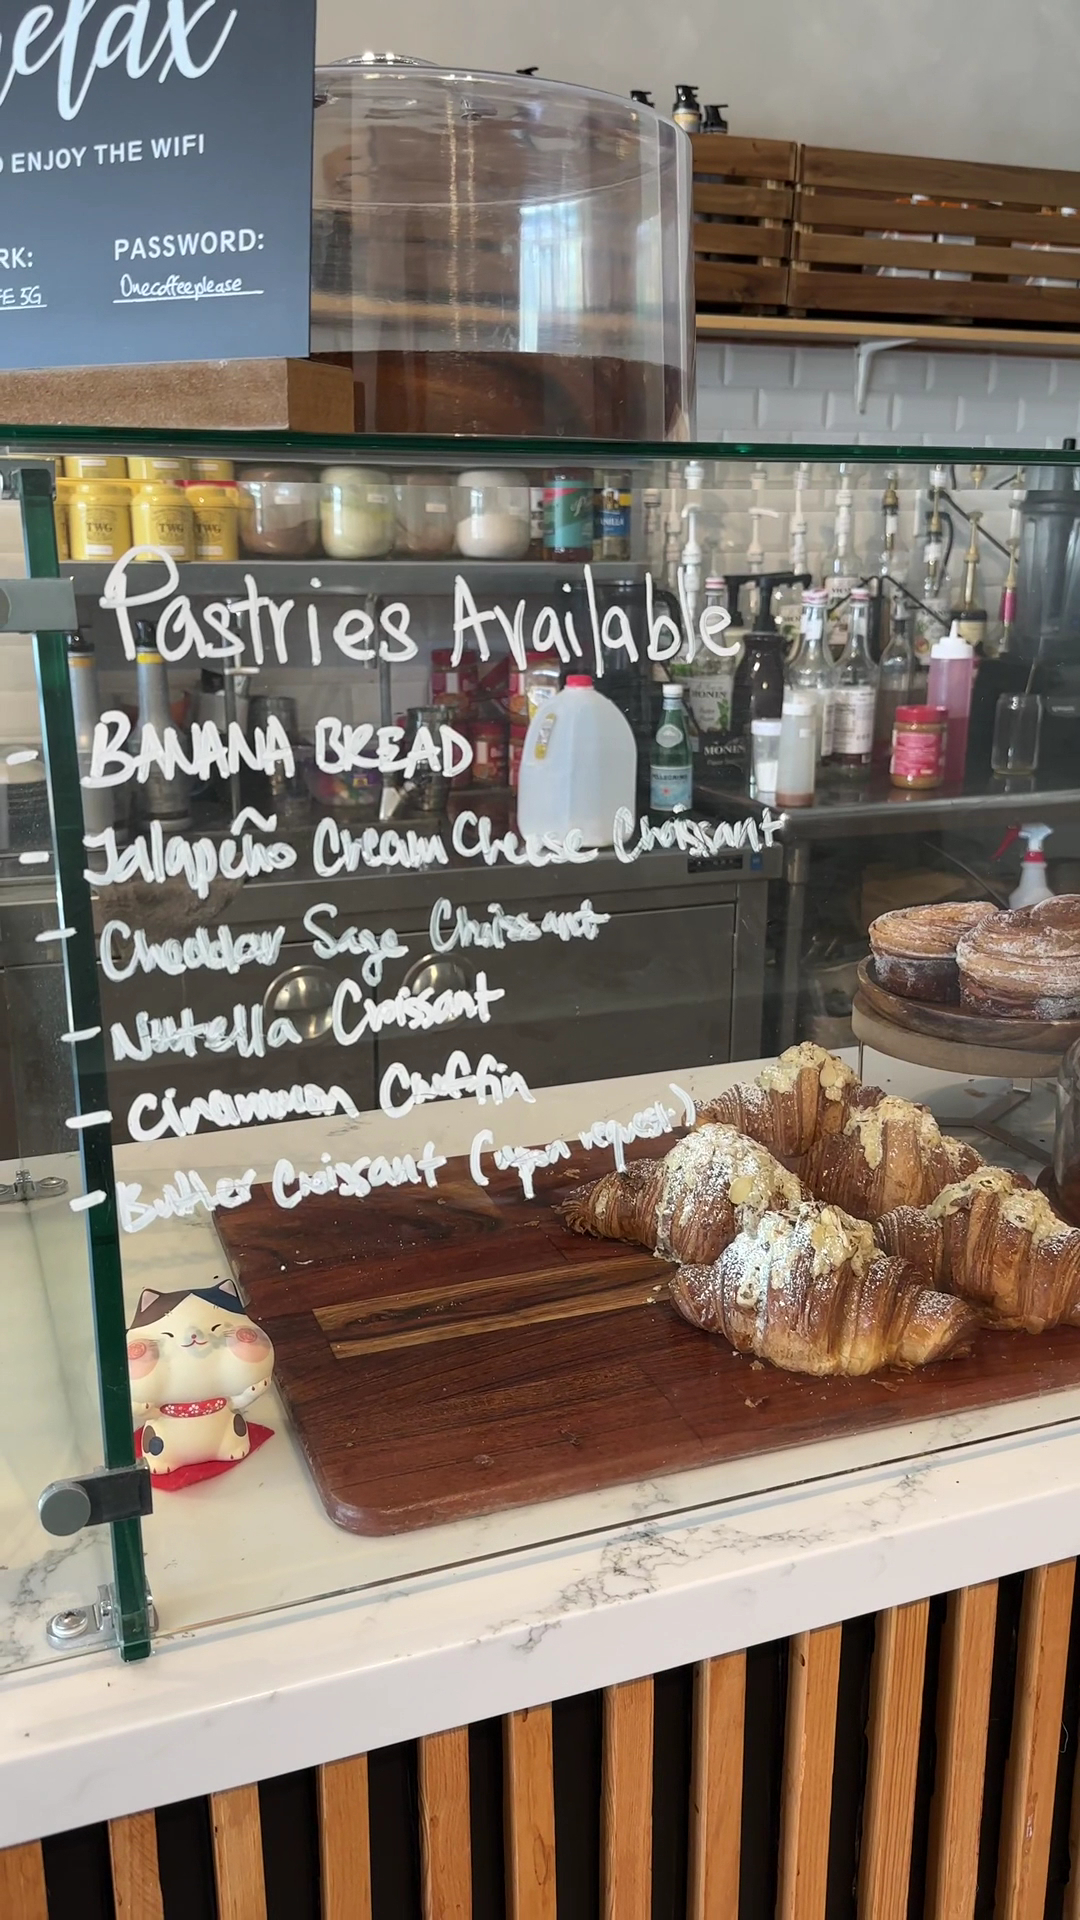 relax
ENJOY THE WIFI
RK:
PASSWORD:
FE 5G
Onecoffeeplease
TWG
TWG
TWG
VANILLA
Pastries Available
- BANANA BREAD
- Jalapeño Cream Cheese Croissant
- Cheddar Sage Croissant
- Nutella Croissant
- Cinammon Cruffin
- Butter Croissant (upon request)
MONIN
MONIN
PELLEGRINO